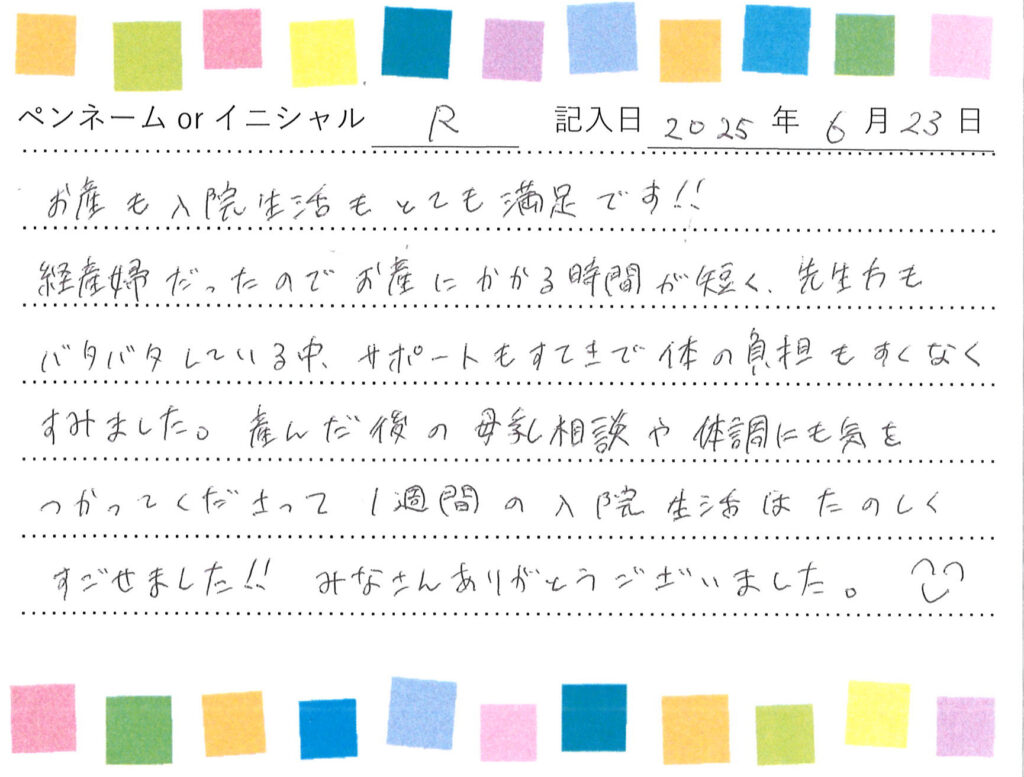 ペンネーム or イニシャル R 記入日 2025 年 6 月 23 日
お産も入院生活もとても満足です!!
経産婦だったのでお産にかかる時間が短く、先生方も
バタバタしている中、サポートもすてきで体の負担もすくなく
すみました。産んだ後の母乳相談や体調にも気を
つかってくださって1週間の入院生活はたのしく
すごせました!! みなさんありがとうございました。